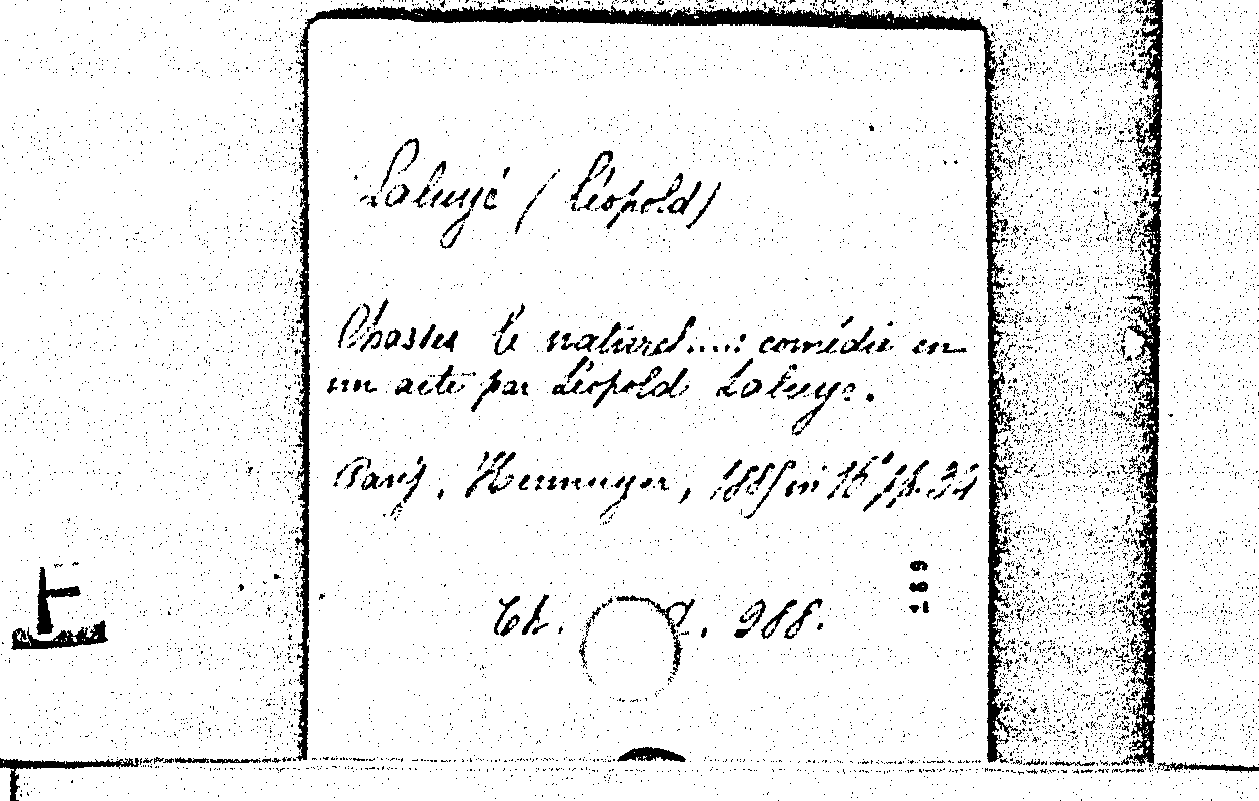 Laluyé (Léopold)
Chassez le naturel....: comédie en
un acte par Léopold Laluyé.
Paris, Hennuyer, in 16° pp. 34
Th. 988.
269